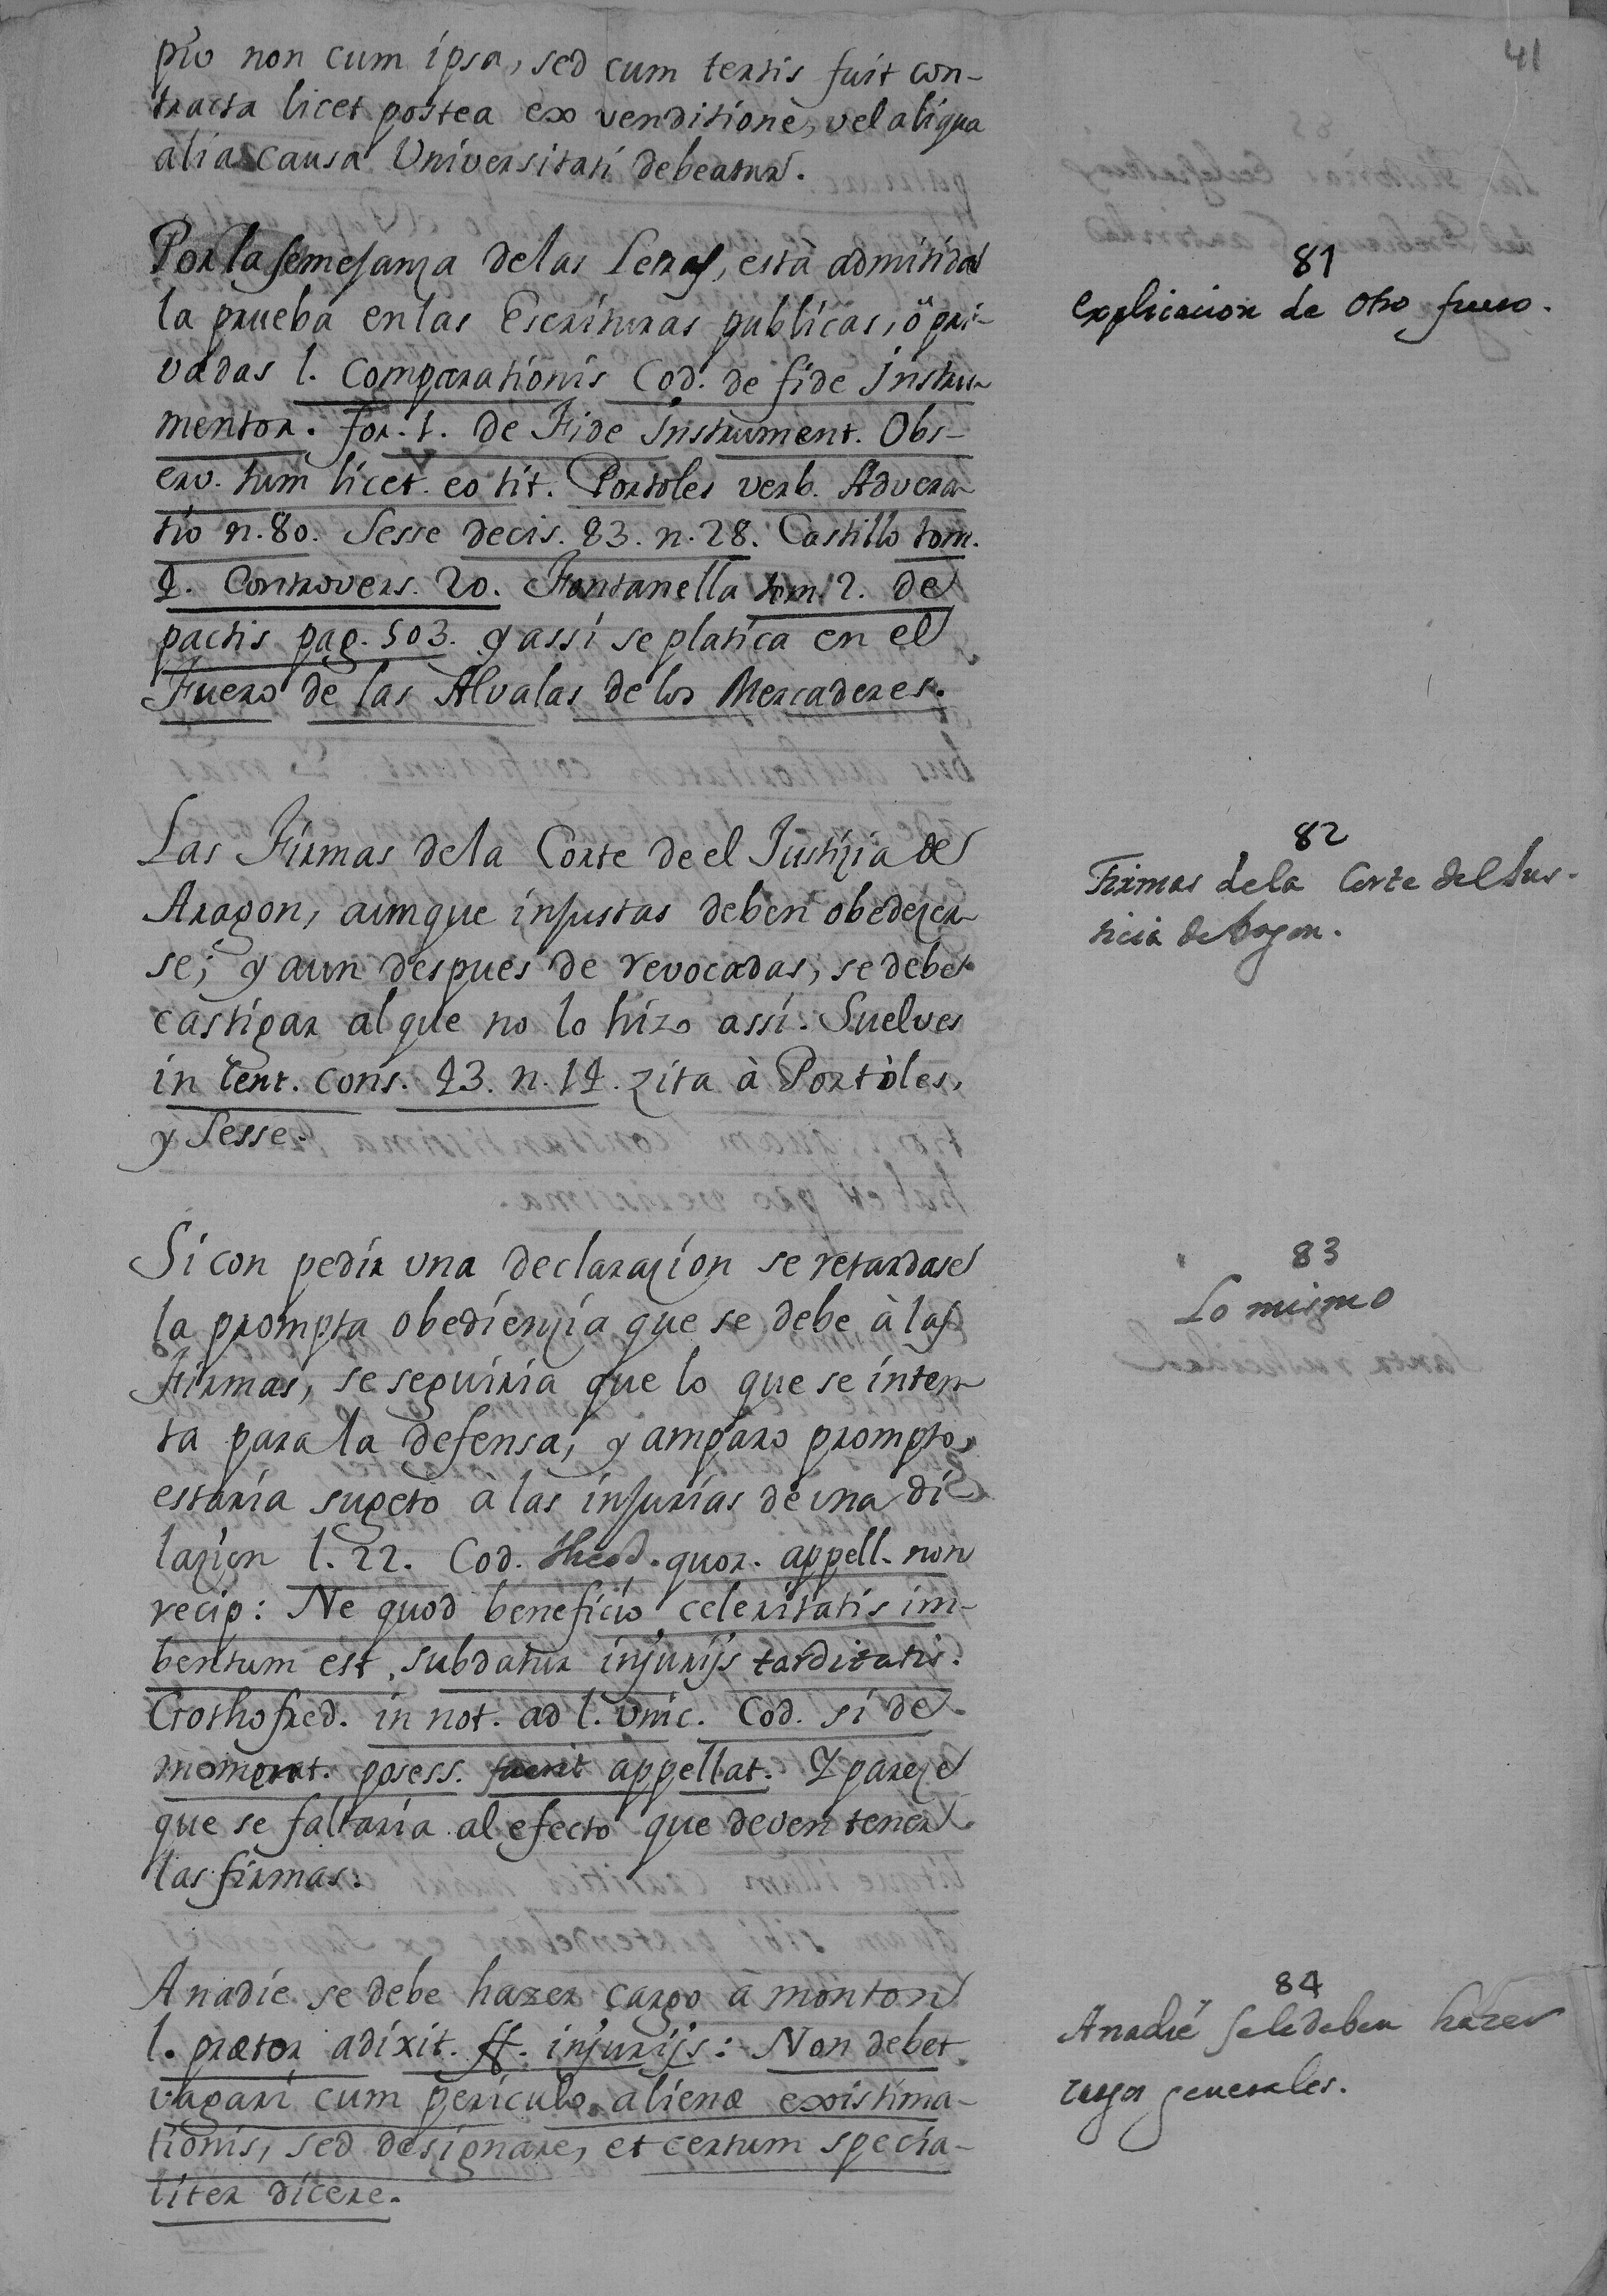 41
pio non cum ipsa, sed cum tertis fuit con-
tracta licet postea ex venditione, vel aliqua
alia causa Universitati debeatur.
Por la semejanza de las Letras, està admitida
la prueba en las Escrituras publicas, ò pri-
vadas l. Comparationis Cod. de fide Instru-
mentor. for. 1. de Fide Instrument. Obs-
erv. tum licet. eo tit. Portoles verb. Advera-
tio n. 80. Sesse decis. 83. n. 28. Castillo tom.
4. Controvers. 20. Fontanella tom. 2. de
pactis pag. 503. y assi se platica en el
Fuero de las Alvalas de los Mercaderes.
81
explicacion de otro fuero.
Las Firmas de la Corte de el Justizia de
Aragon, aunque injustas deben obedezer-
se; y aun despues de revocadas, se debe
castigar al que no lo hizo assi. Suelves
in cent. cons. 43. n. 14. zita à Portòles,
y Sesse.
82
Firmas de la Corte del Jus-
ticia de Aragon.
Si con pedir una declarazion se retardase
la prompta obedienzia que se debe à las
Firmas, se seguiria que lo que se inten-
ta para la defensa, y amparo prompto,
estaria sugeto à las injurias de una di-
lazion l. 22. Cod. Theod. quor. appell. non
recip: Ne quod beneficio celeritatis in-
bentum est, subdatur injurijs tarditatis.
Gothofred. in not. ad l. unic. Cod. si de
moment. posess. fuerit appellat. Y pareze
que se faltaria al efecto que deven tener
las firmas.
83
Lo mismo
A nadie se debe hazer cargo à monton
l. prætor adixit. ff. injurijs: Non debet
vagari cum periculo alienæ existima-
tionis, sed designare, et certum specia-
liter dicere.
84
A nadie se le deben hazer
cargos generales.